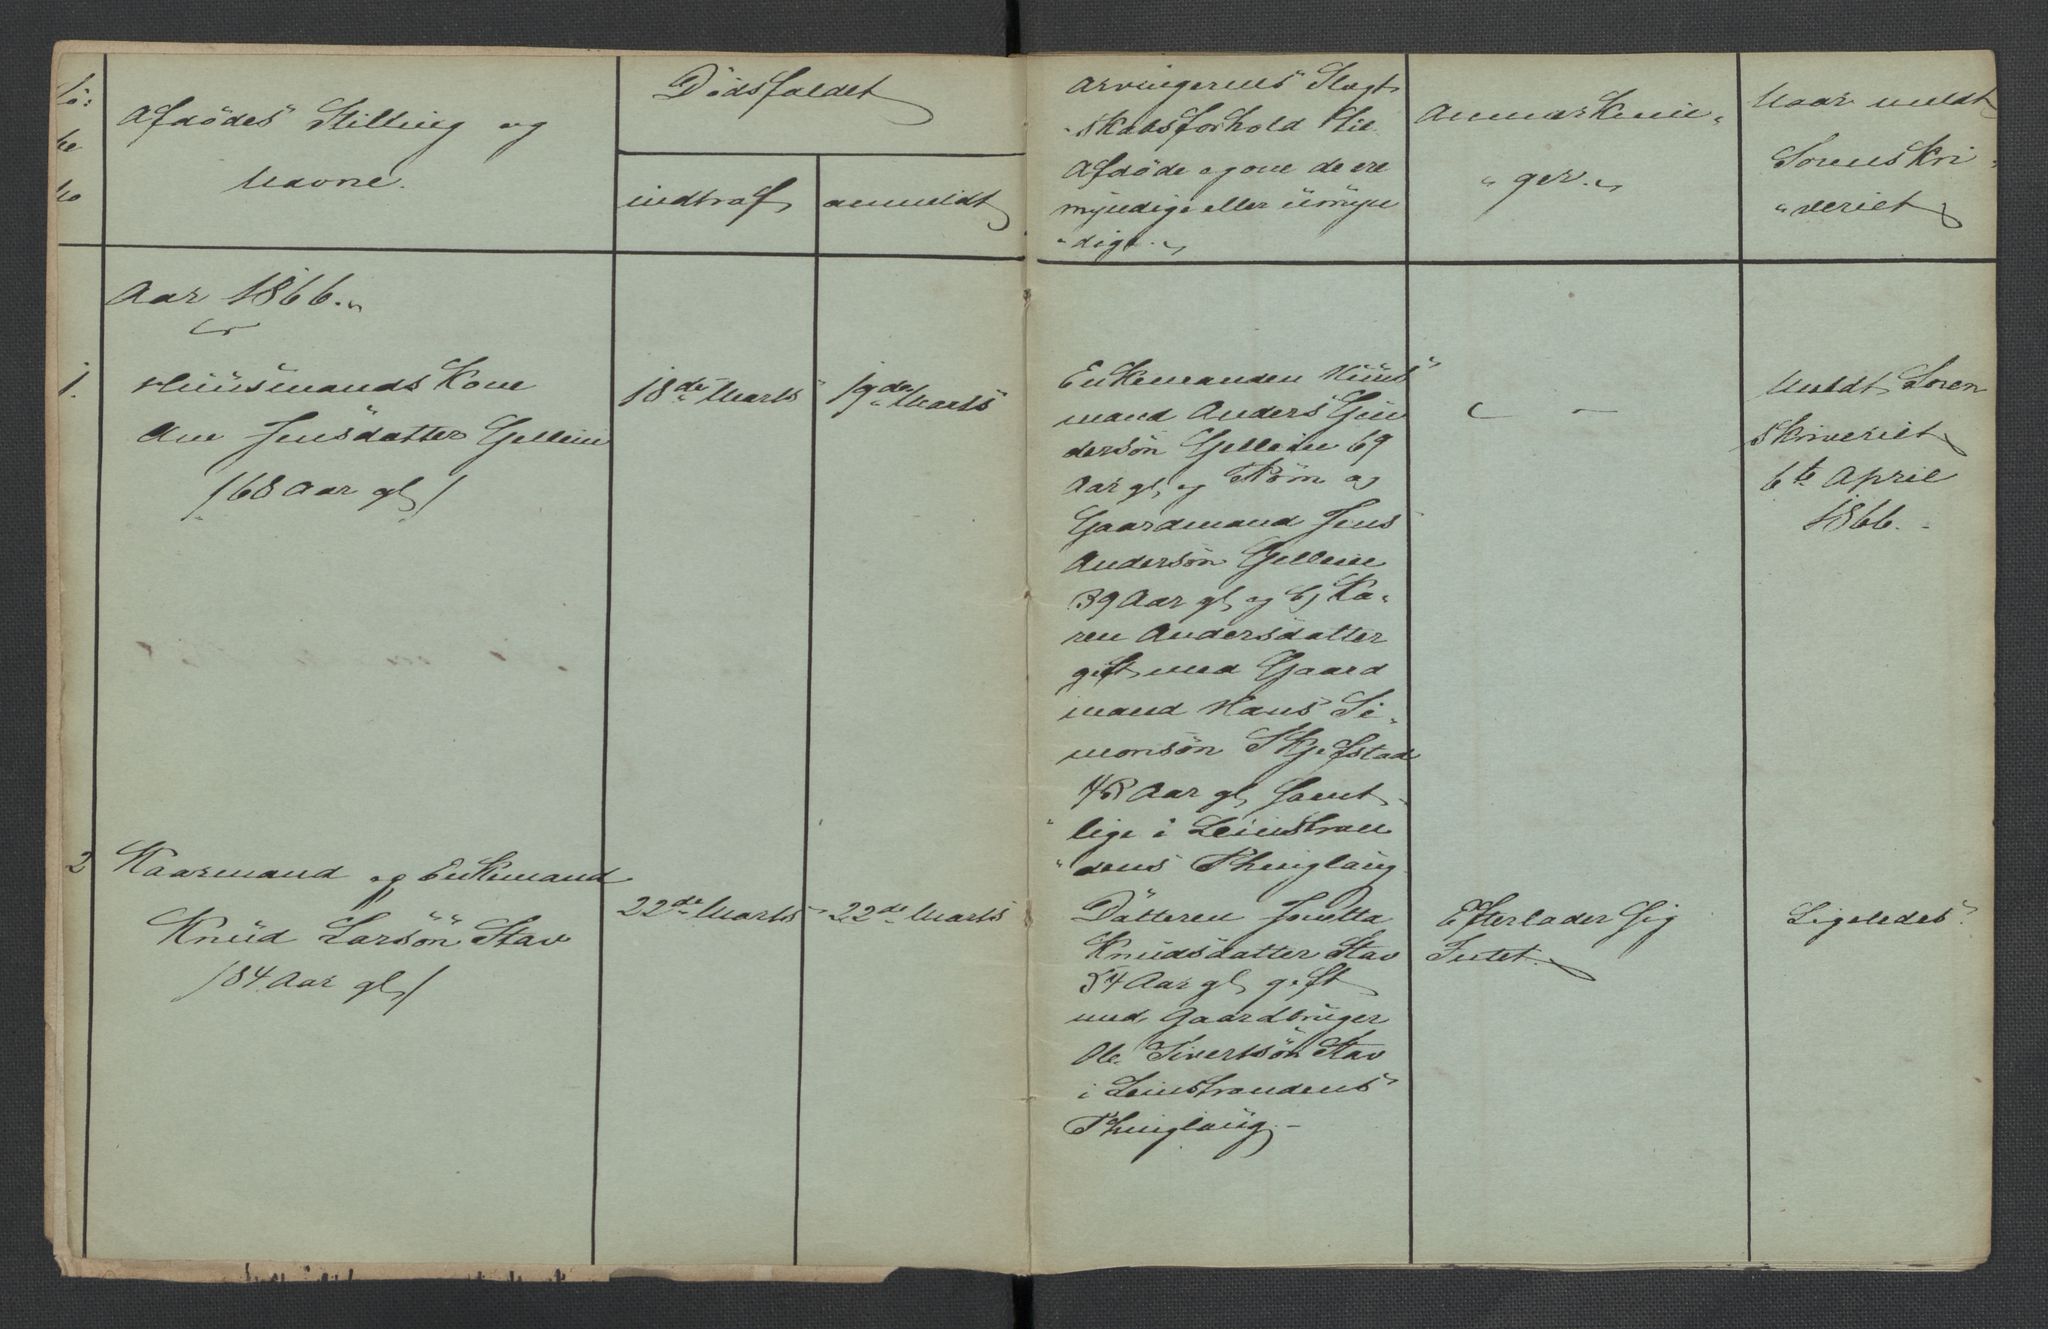 Lö-
be
No
Afdödes Stilling og
Navne.
Dödsfaldet
indtraf
anmeldt
Arvingernes Slægt
skabsforhold til
Afdöde og om de ere
myndige eller umyn
dige.
Anmærknin
ger.
Naar meldt
Sorenskri
veriet
Aar 1866.
1.
Huusmands Kone
Ane Jensdatter Gellein
/68 Aar gl/
18de Marts
19de Marts
Enkemanden Huus
mand Anders Gun
dersön Gellein 69
Aar gl, og Börn a/
Gaardmand Jens
Andersön Gellein
39 Aar gl, og b/ Ka-
ren Andersdatter
gift med Gaard
mand Hans Si-
monsön Skjefstad
Aar gl, samt
lige i Leinstran
dens Thinglaug
Meldt Soren
skriveriet
6te April
1866.
2
Kaarmand og Enkemand
Knud Larsön Stav
/84 Aar gl/
22de Marts
22de Marts
Datteren Jonetta
Knudsdatter Stav
54 Aar gl, gift
med Gaardbruger
Ole Sivertsön Stav
i Leinstrandens
Thinglaug.
Efterlader sig
Intet.
Ligeledes.